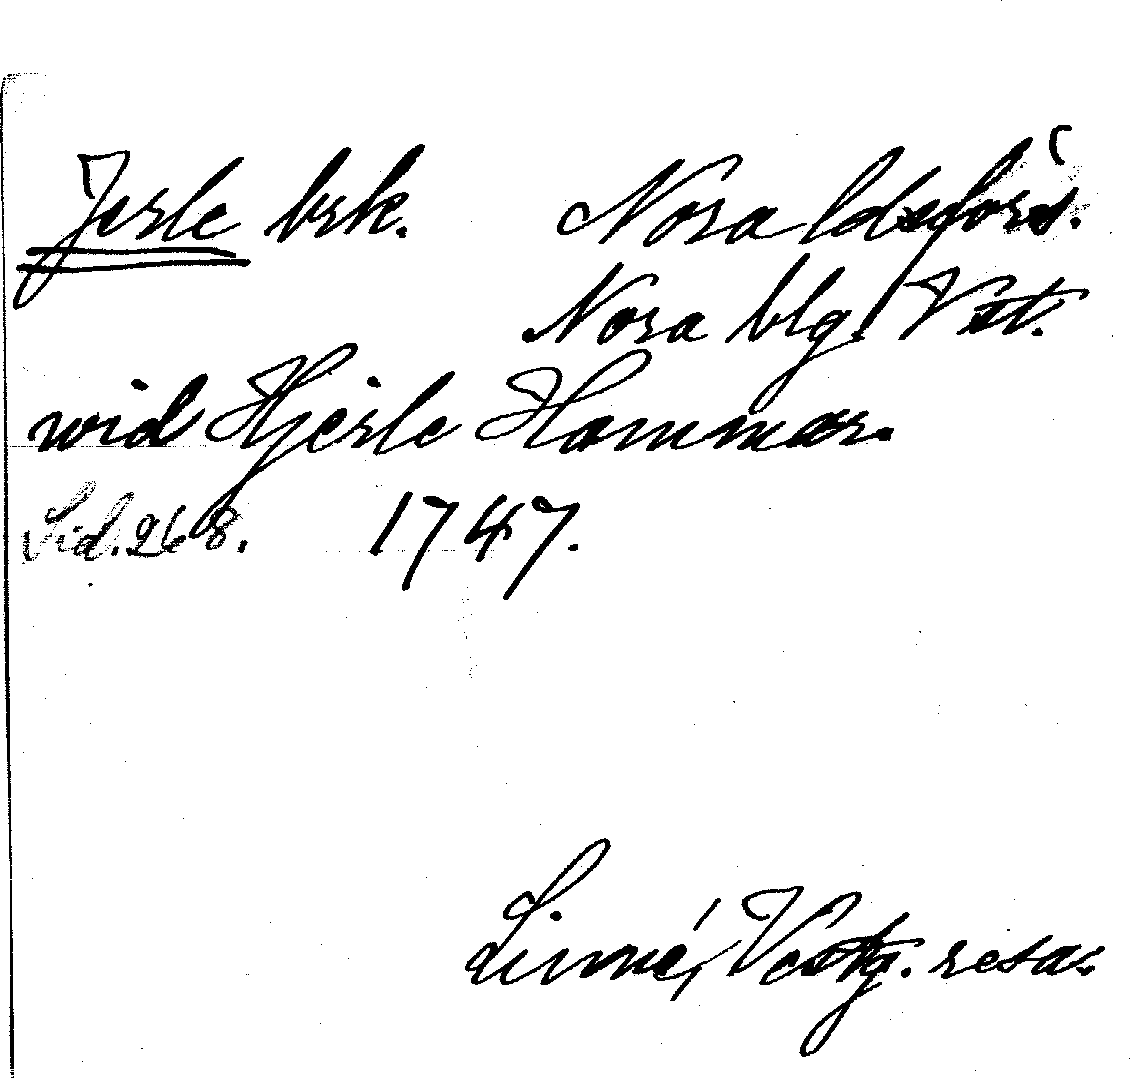 Jerle brk. Nora ldsförs.
Nora blg. Vstl.
wid Hjerle Hammar.
Sid. 268. 1747.
Linné, Västg. resa.